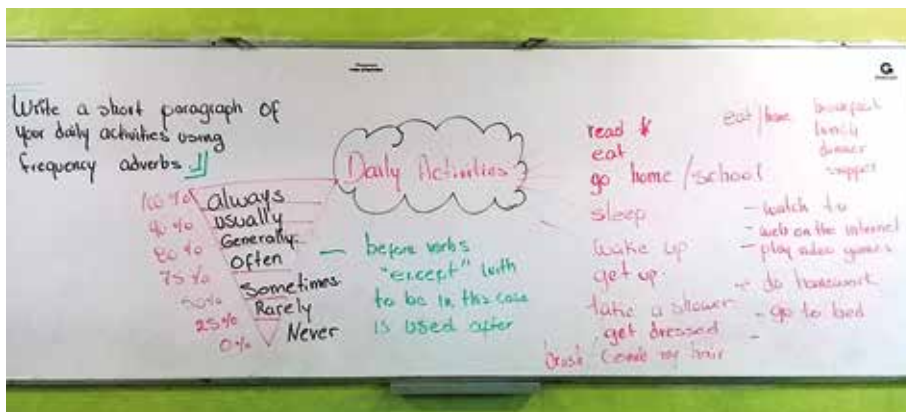 Write a short paragraph of
your daily activities using
frequency adverbs.
Daily Activities
100% always
90% usually
80% Generally
75% Often
50% Sometimes
25% Rarely
0% Never
before verbs
"except" with
to be in this case
is used after
read
eat
go home/school
sleep
wake up
get up
take a shower
get dressed
brush/comb my hair
eat/have breakfast
lunch
dinner
supper
- watch tv
- web on the internet
- play video games
- do homework
- go to bed
G